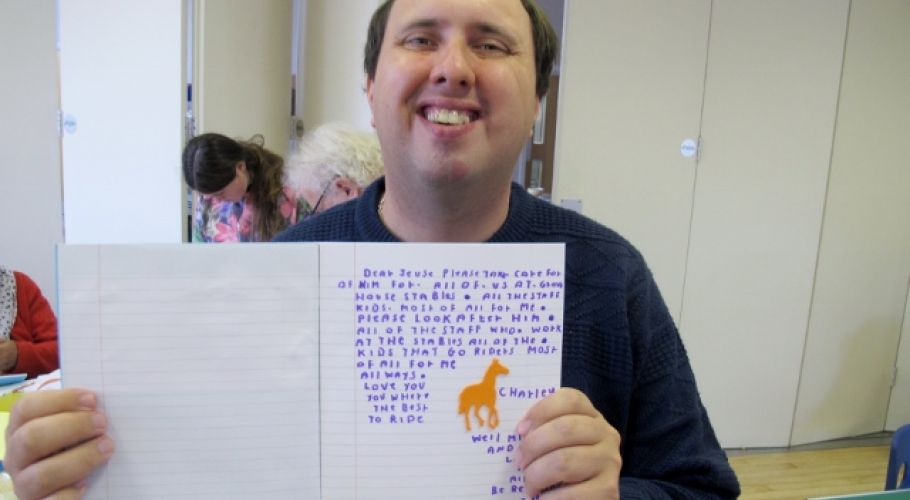 Dear Jeuse Please Take Care For
OF HIM For. All OF. US AT. Grang
House STABles. All THE STAFF
KIDS. MOST OF All For ME.
PLEASE LOOK AFTER HIM.
All OF THE STAFF WHO. WORK
AT THE STABles All OF THE.
KIDS THAT GO RIDERS MOST
OF All For ME
All WAYS.
LOVE YOU
YOU WHERE
THE BEST
TO RIDE
CHARLEY
Well
AND
BE RE